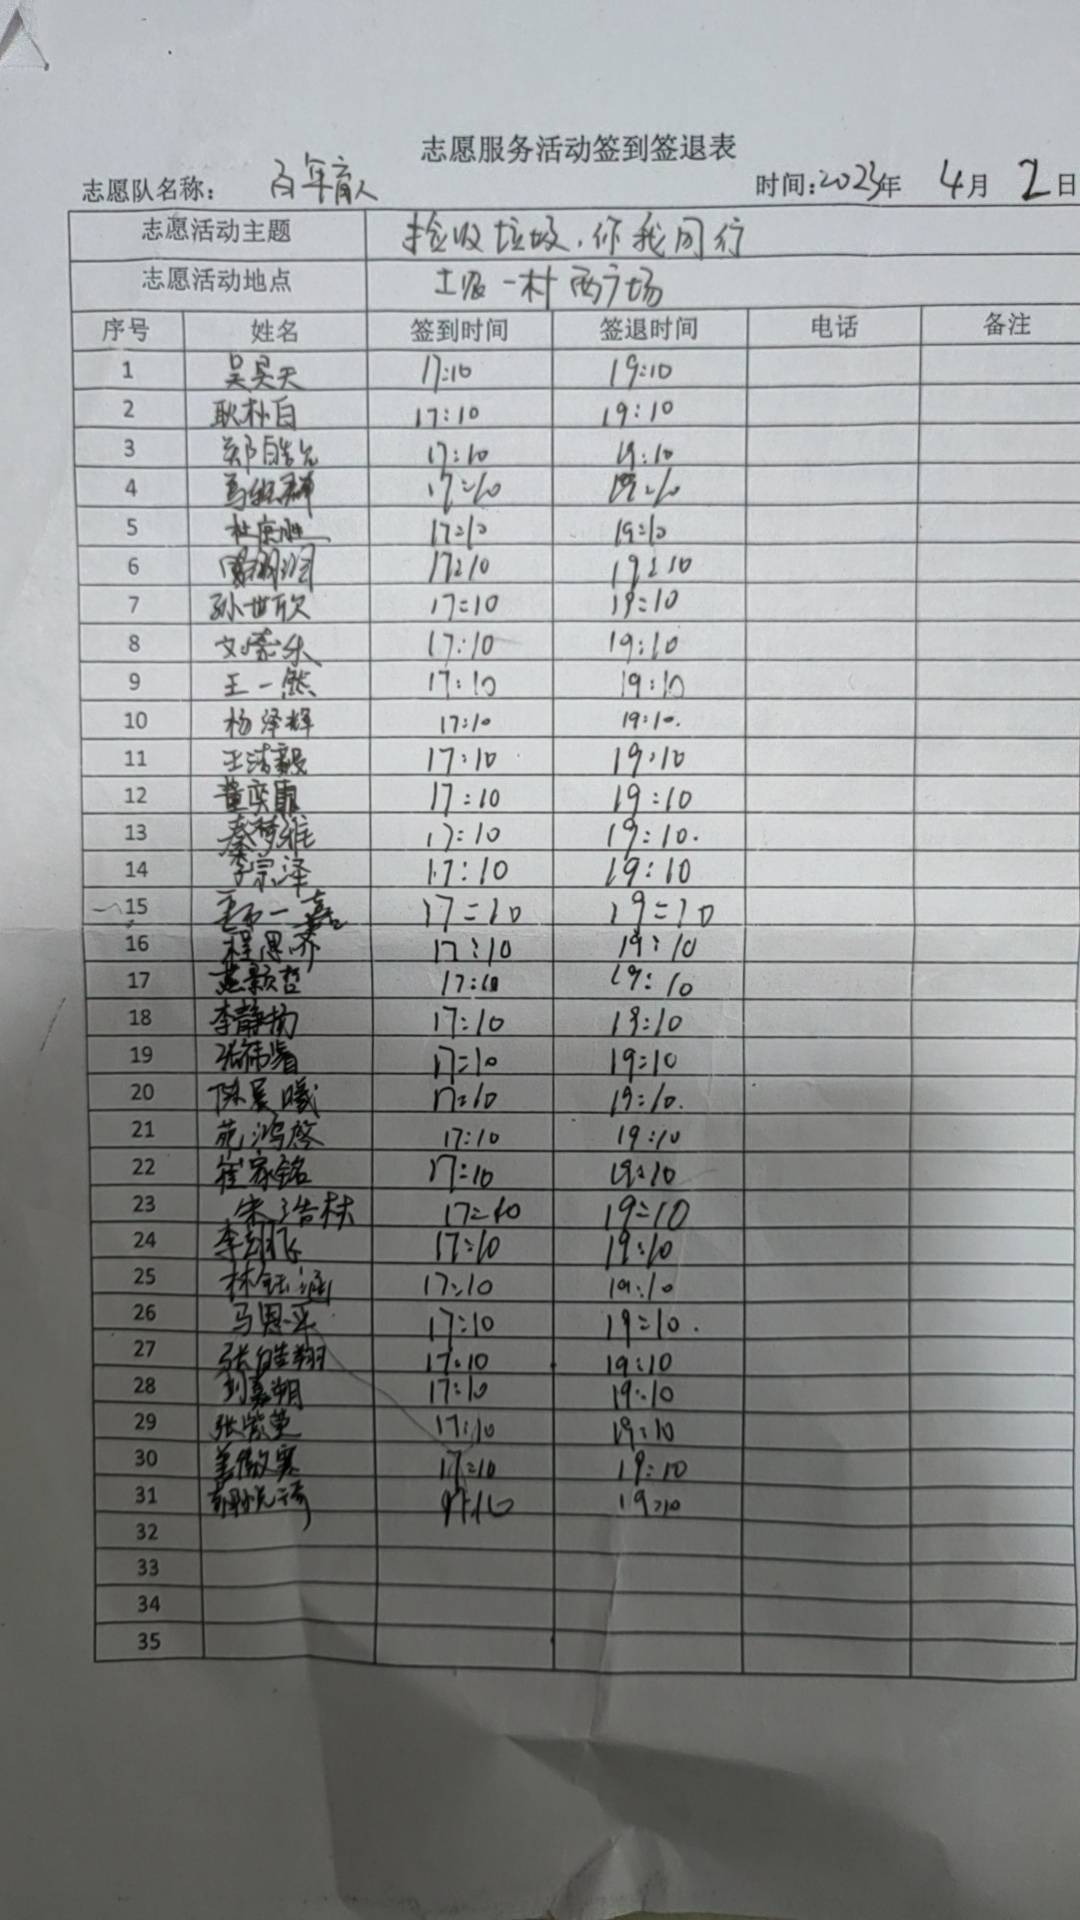 志愿服务活动签到签退表
志愿队名称： 百年育人 时间：2023年 4月 2日
志愿活动主题 捡收垃圾，你我同行
志愿活动地点 一村西广场
序号 姓名 签到时间 签退时间 电话 备注
1 吴昊天 17:10 19:10
2 耿朴白 17:10 19:10
3 郑皓允 17:10 19:10
4 17:10 19:10
5 杜宗胜 17:10 19:10
6 17:10 19:10
7 孙世欣 17:10 19:10
8 刘家乐 17:10 19:10
9 王一然 17:10 19:10
10 杨泽辉 17:10 19:10.
11 王浩毅 17:10 19:10
12 董奕 17:10 19:10
13 秦梦雅 17:10 19:10.
14 李宗泽 17:10 19:10
15 17:10 19:10
16 程思齐 17:10 19:10
17 17:10 19:10
18 李静 17:10 19:10
19 张伟 17:10 19:10
20 陈晨曦 17:10 19:10.
21 苑鸿 17:10 19:10
22 崔家铭 17:10 19:10
23 宋浩林 17:10 19:10
24 李 17:10 19:10
25 林钰涵 17:10 19:10
26 马恩平 17:10 19:10.
27 张皓翔 17:10 19:10
28 刘嘉朔 17:10 19:10
29 张紫萱 17:10 19:10
30 姜傲寒 17:10 19:10
31 19:10
32
33
34
35